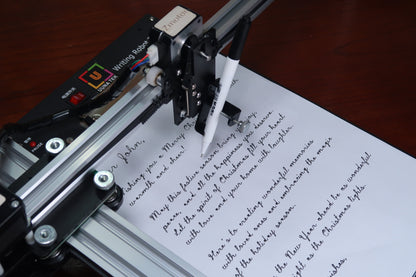 Writing Robot
UUNA TEK
John,
Wishing you a Merry Ch
warmth and cheer!
May this festive season bring you joy,
peace, and all the happiness you deserve.
Let the spirit of Christmas fill your heart
with love and your home with laughter.
Here's to creating wonderful memories
with loved ones and embracing the magic
of the holiday season.
the New Year ahead be as wonderful
ight as the Christmas lights.
ishes,